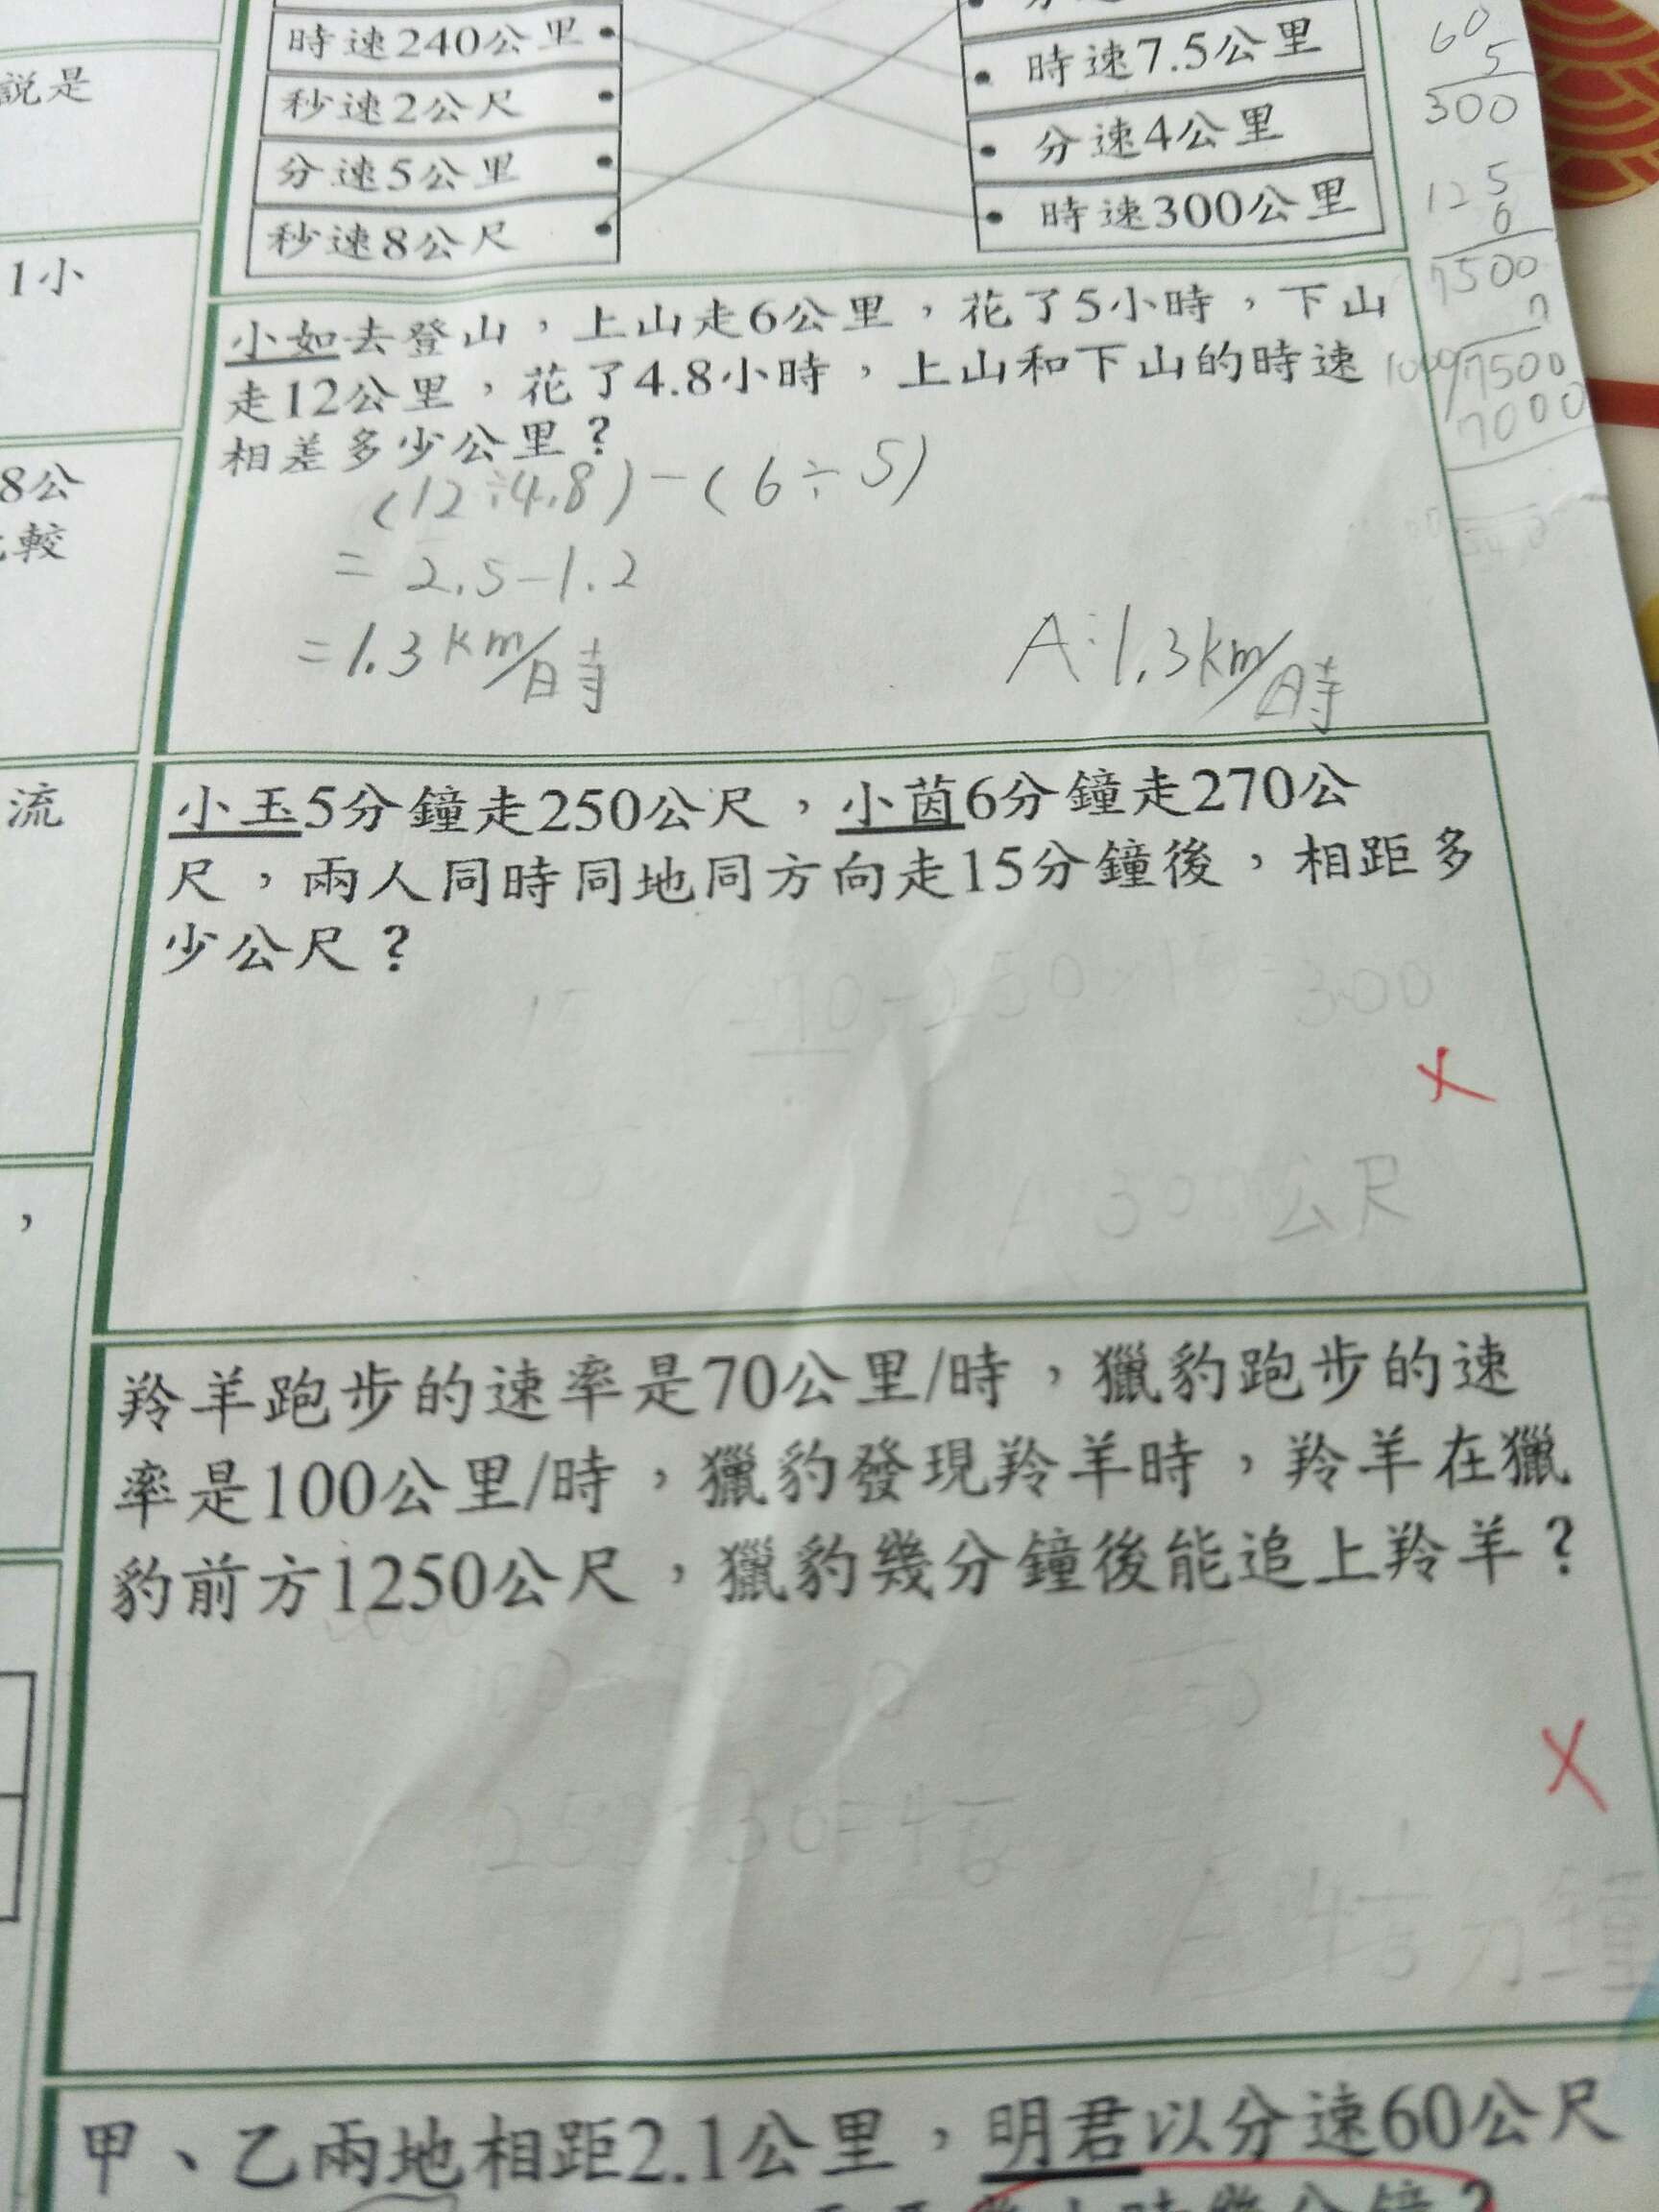 時速240公里
秒速2公尺
分速5公里
秒速8公尺
時速7.5公里
分速4公里
時速300公里
60
5
300
125
6
7500
7
1000 7500
7000
說是
1小
8公
較
流
，
小如去登山，上山走6公里，花了5小時，下山
走12公里，花了4.8小時，上山和下山的時速
相差多少公里？
(12÷4.8)-(6÷5)
= 2.5-1.2
=1.3km/時
A:1.3km/時
小玉5分鐘走250公尺，小茵6分鐘走270公
尺，兩人同時同地同方向走15分鐘後，相距多
少公尺？
300公尺
羚羊跑步的速率是70公里/時，獵豹跑步的速
率是100公里/時，獵豹發現羚羊時，羚羊在獵
豹前方1250公尺，獵豹幾分鐘後能追上羚羊？
甲、乙兩地相距2.1公里，明君以分速60公尺